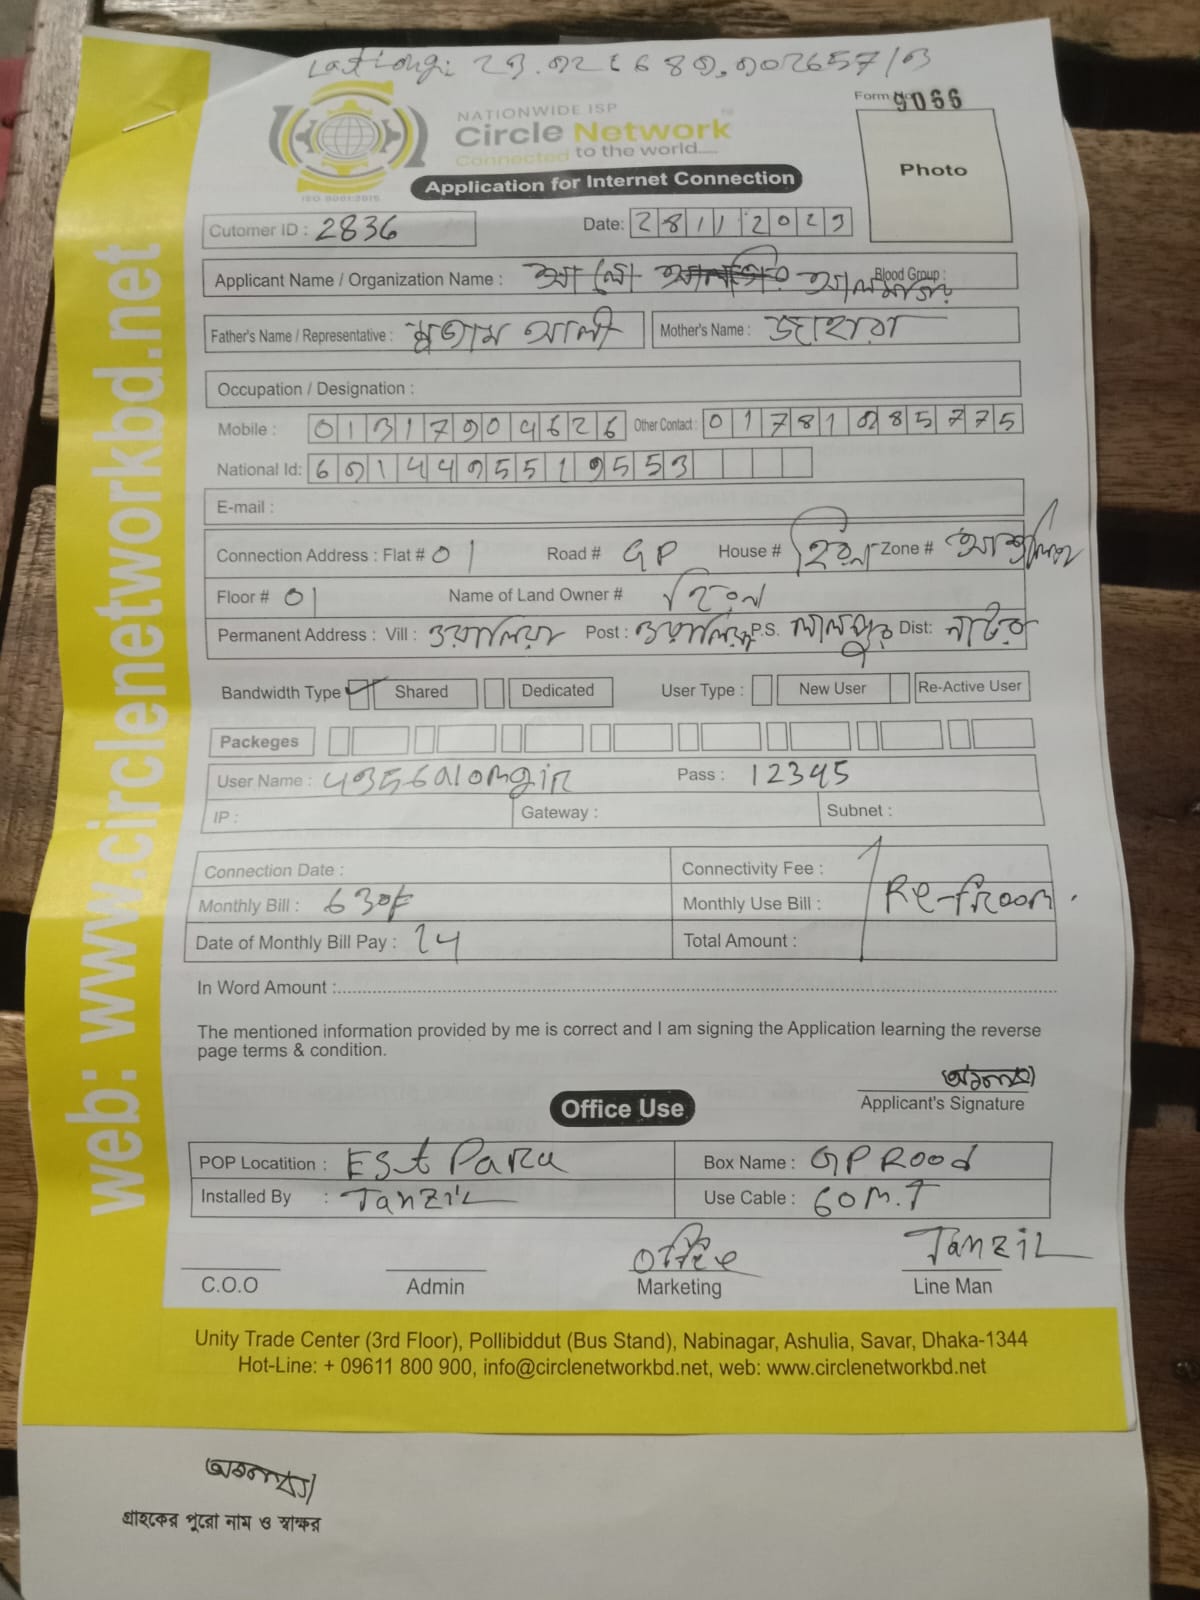 Form No 9066
NATIONWIDE ISP
Circle Network
Connected to the world.....
ISO 9001:2015
Application for Internet Connection
Photo
Cutomer ID : 2836
Date: 28 11 2023
Applicant Name / Organization Name :
Blood Group :
Father's Name / Representative : আলী
Mother's Name : জাহারা
Occupation / Designation :
Mobile : 01317904626 Other Contact :
National Id:
E-mail :
Connection Address : Flat # 01 Road # GP House # Zone #
Floor # 01 Name of Land Owner #
Permanent Address : Vill : ওয়ালিয়া Post : ওয়ালিয়া P.S. লালপুর Dist: নাটোর
Bandwidth Type Shared Dedicated User Type : New User Re-Active User
Packeges
User Name : Pass : 12345
IP : Gateway : Subnet :
Connection Date : Connectivity Fee :
Monthly Bill : 630/- Monthly Use Bill :
Date of Monthly Bill Pay : 14 Total Amount :
In Word Amount :
The mentioned information provided by me is correct and I am signing the Application learning the reverse
page terms & condition.
Applicant's Signature
Office Use
POP Locatition : Est Para Box Name : GP Rood
Installed By : Tanzil Use Cable : 60 M.T
Office Tanzil
C.O.O Admin Marketing Line Man
Unity Trade Center (3rd Floor), Pollibiddut (Bus Stand), Nabinagar, Ashulia, Savar, Dhaka-1344
Hot-Line: + 09611 800 900, info@circlenetworkbd.net, web: www.circlenetworkbd.net
web: www.circlenetworkbd.net
গ্রাহকের পুরো নাম ও স্বাক্ষর